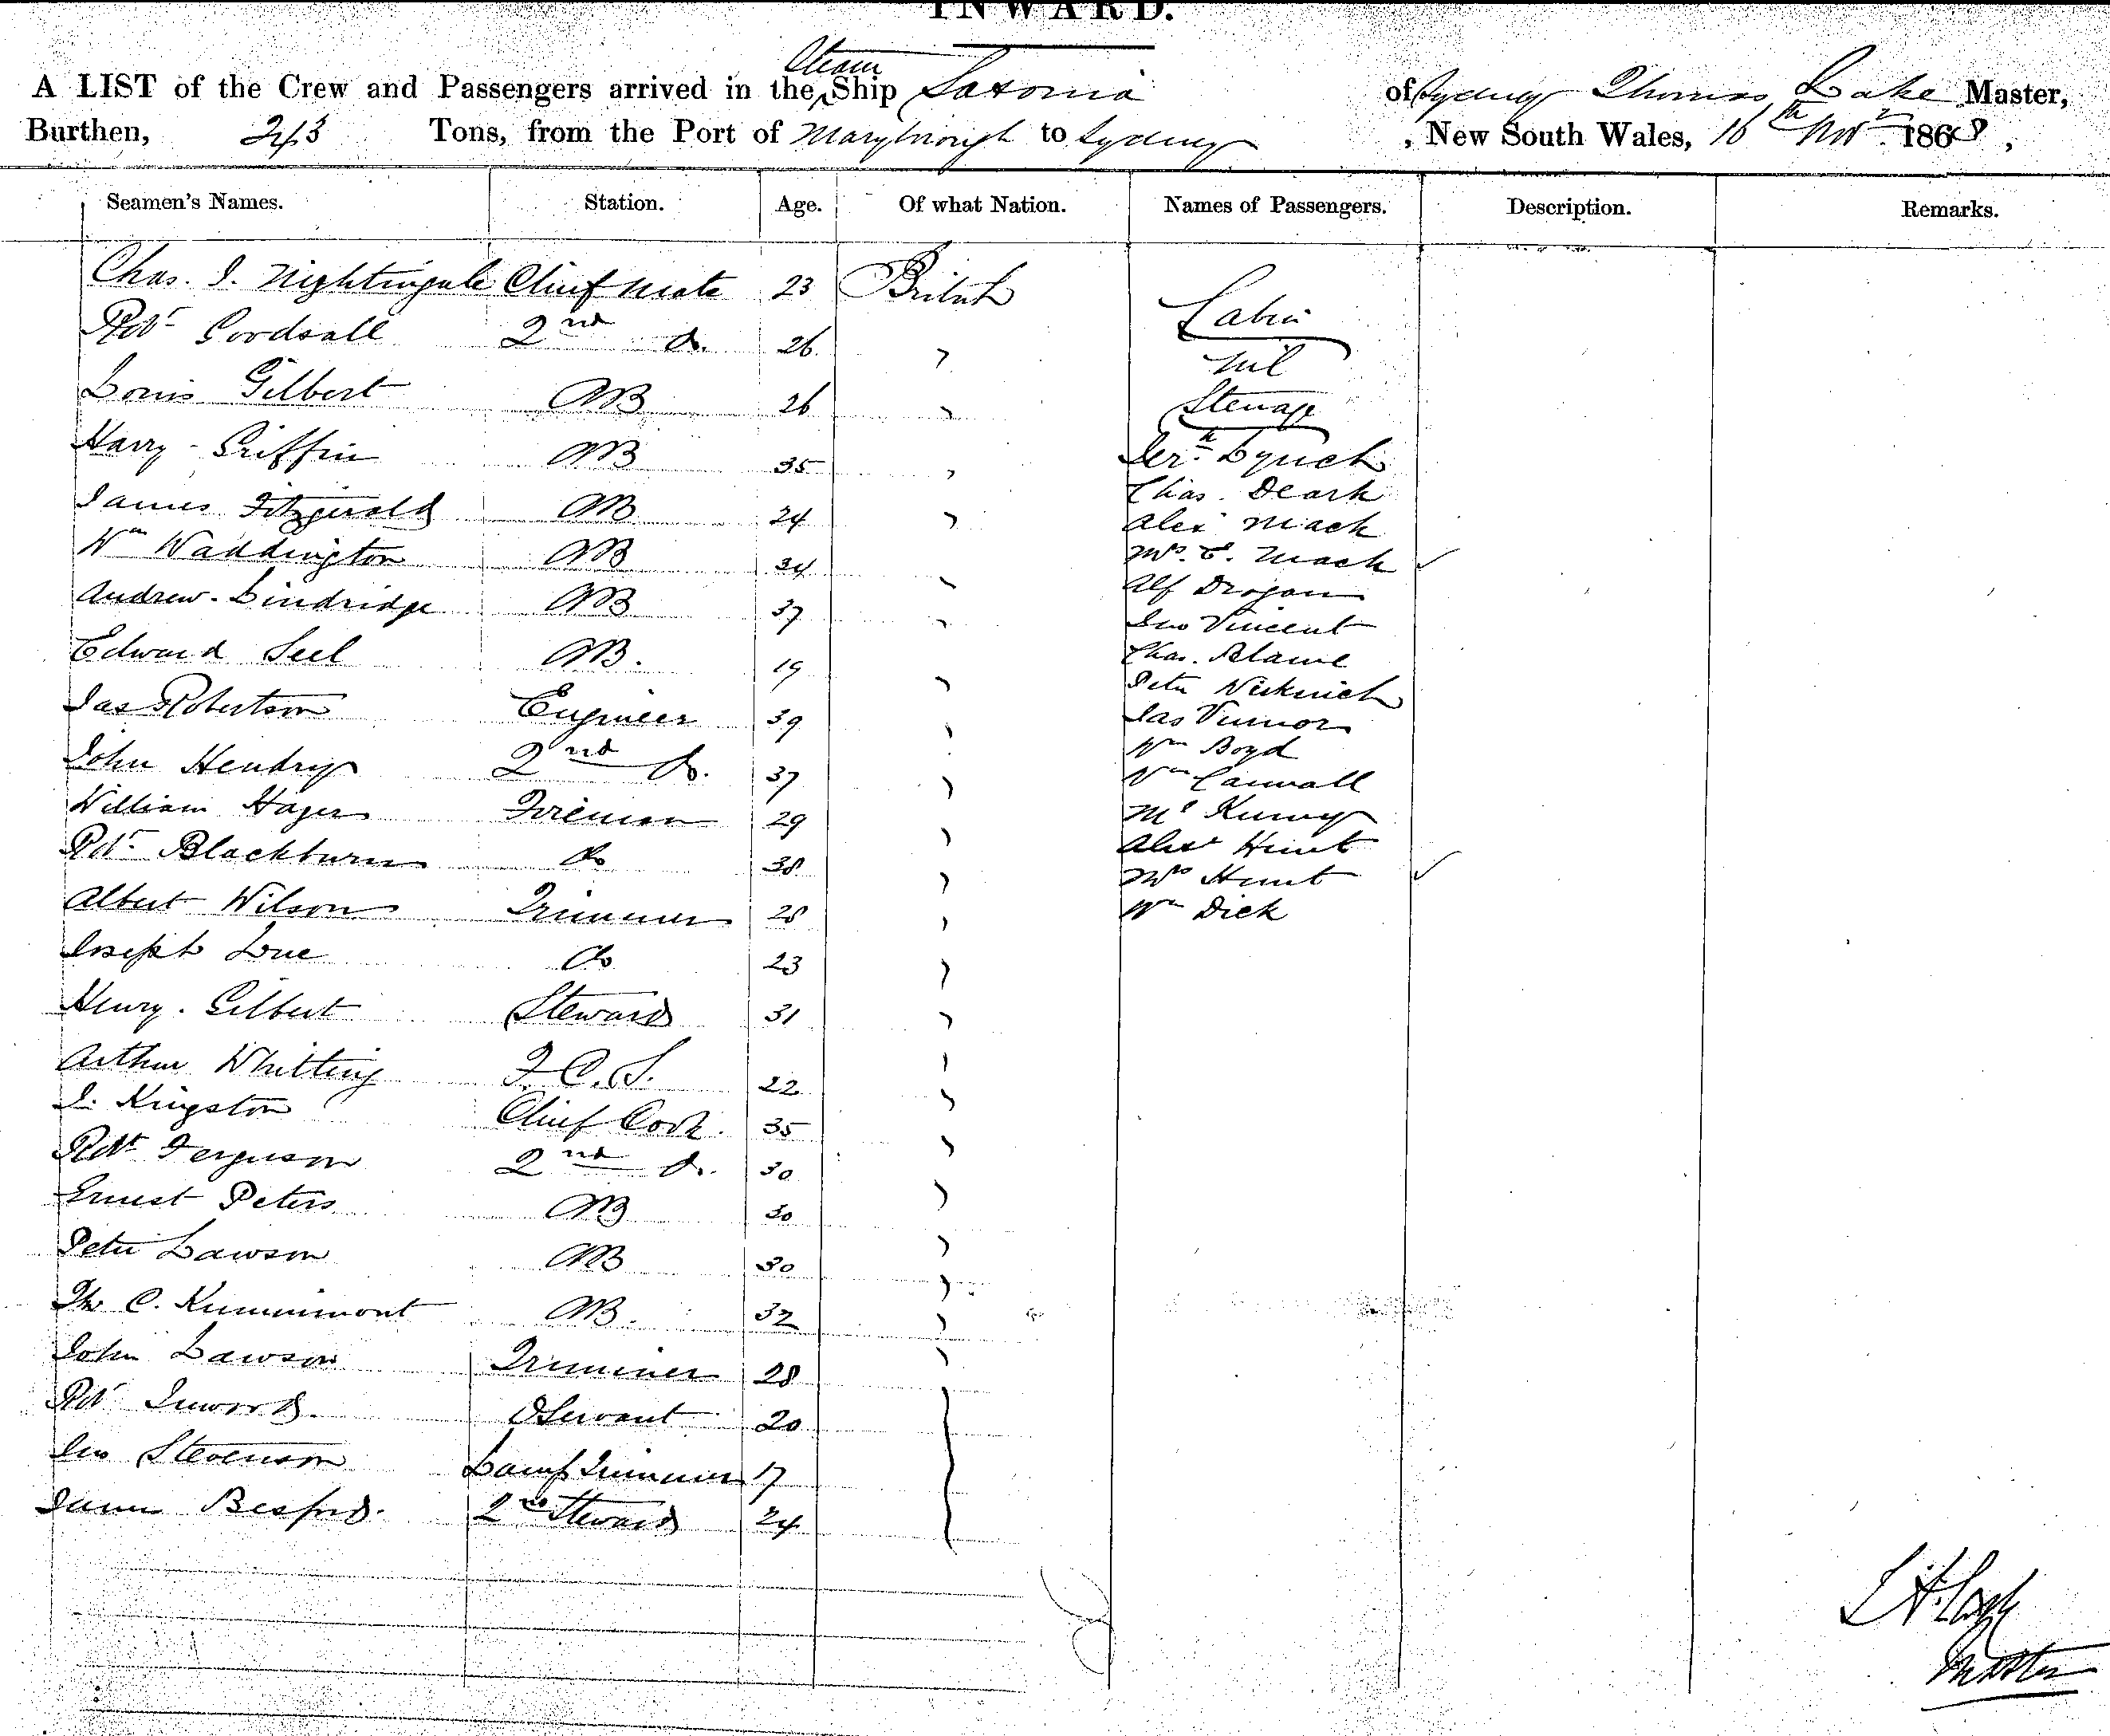 INWARD.
A LIST of the Crew and Passengers arrived in the Steam Ship Saxonia of Sydney Thomas Lake Master,
Burthen, 243 Tons, from the Port of Maryborough to Sydney, New South Wales, 16th Novr 1868,
Seamen's Names. Station. Age. Of what Nation. Names of Passengers. Description. Remarks.
Chas. J. Nightingale Chief Mate 23 British
Cabin
Robt Goodsall 2nd do. 26 "
Nil
Louis Gilbert AB 26 "
Steerage
Harry Griffin AB 35 "
Jerh Lynch
Chas. Deark
James Fitzgerald AB 24 "
Alex Mack
Wm Waddington AB 34 "
Mrs. C. Mack ✓
Andrew Lindridge AB 37 "
Alf Drojan
Jno Vincent
Edward Seel AB. 19 "
Chas. Blame
Peter
Jas Robertson Engineer 39 "
Jas
Wm Boyd
John Hendry 2nd do. 37 "
Wm
William Hager Fireman 29 "
Robt Blackburn do 38 "
Alexr Hunt
Mrs Hunt ✓
Albert Wilson Trimmer 28 "
Wm Dick
Joseph Lue do 23 "
Henry Gilbert Steward 31 "
Arthur Whitting F.C.S. 22 "
J. Kingston Chief Cook. 35 "
Robt Ferguson 2nd do. 30 "
Ernest Peters AB 30 "
Peter Lawson AB 30 "
C. AB. 32 "
John Lawson Trimmer 28 "
Robt Servant 20
Jno Stevenson Lamp Trimmer 17
James Besford. 2nd Steward 24
Master